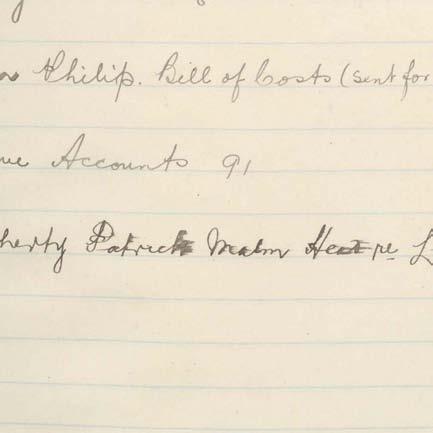 Philip. Bill of Costs (sent for
Accounts 91
herty Patrick Malin Head re L